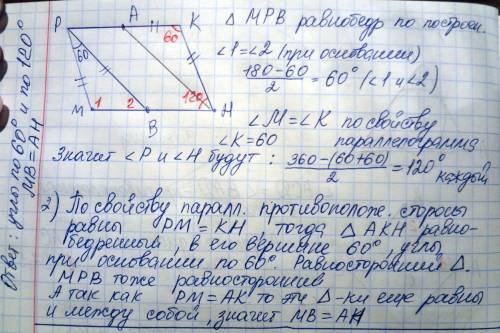 P A H K
60 60
120
M 1 2 B H
△ МРВ равнобедр по построен.
∠1=∠2 (при основании)
180-60/2 = 60° (∠1 и ∠2)
∠M = ∠K по свойству
∠K=60 параллелограмма
Значит ∠P и ∠H будут : 360-(60+60)/2 = 120°
каждый
2) По свойству паралл. противополож. стороны
равны PM = KH, тогда △ AKH равно-
бедренный, в его вершине 60°, углы
при основании по 60°. Равносторонний △.
МРВ тоже равносторонний
А так как PM = AK то эти △-ки еще равны
и между собой, значит MB = AH
Ответ: углы по 60° и по 120°
MB = AH